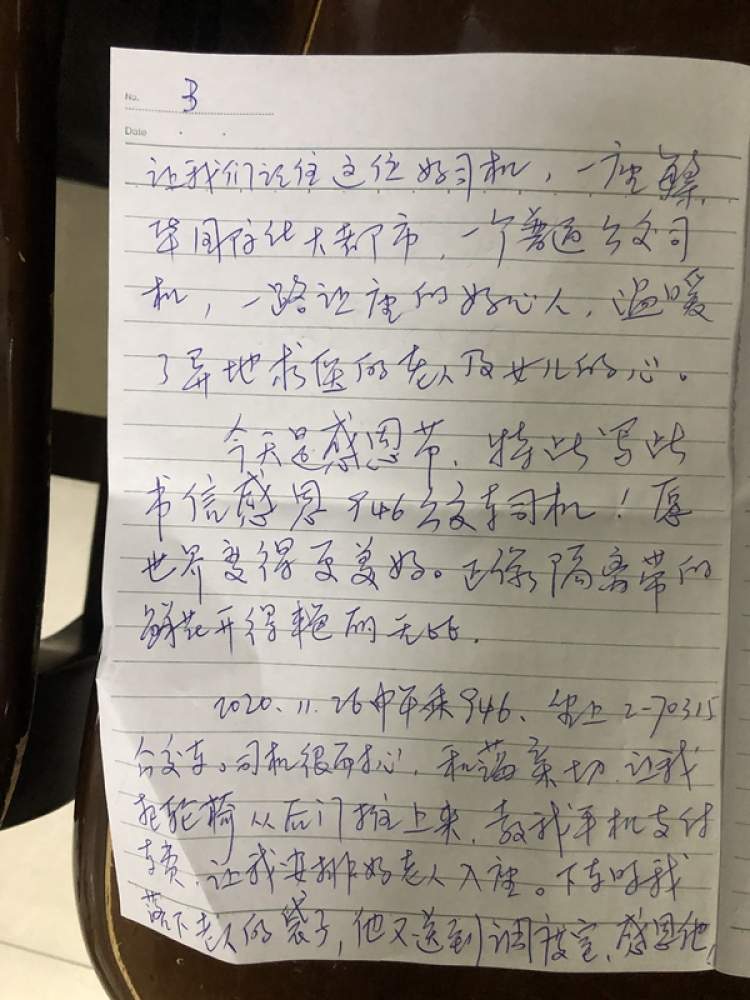 No. 3
Date
让我们记住这位好司机，一座繁
华国际化大都市，一个普通公交司
机，一路让座的好心人，温暖
了异地求医的老人及女儿的心。
今天是感恩节，特此写此
书信感恩946公交车司机！愿
世界变得更美好。正像隔离带的
鲜花开得艳丽无比。
2020.11.26中午乘946、坐上2-70315
公交车。司机很耐心，和蔼亲切，让我
把轮椅从后门推上来，教我手机支付
车费，让我安排好老人入座。下车时我
落下老人的袋子，他又送到调度室，感恩他！